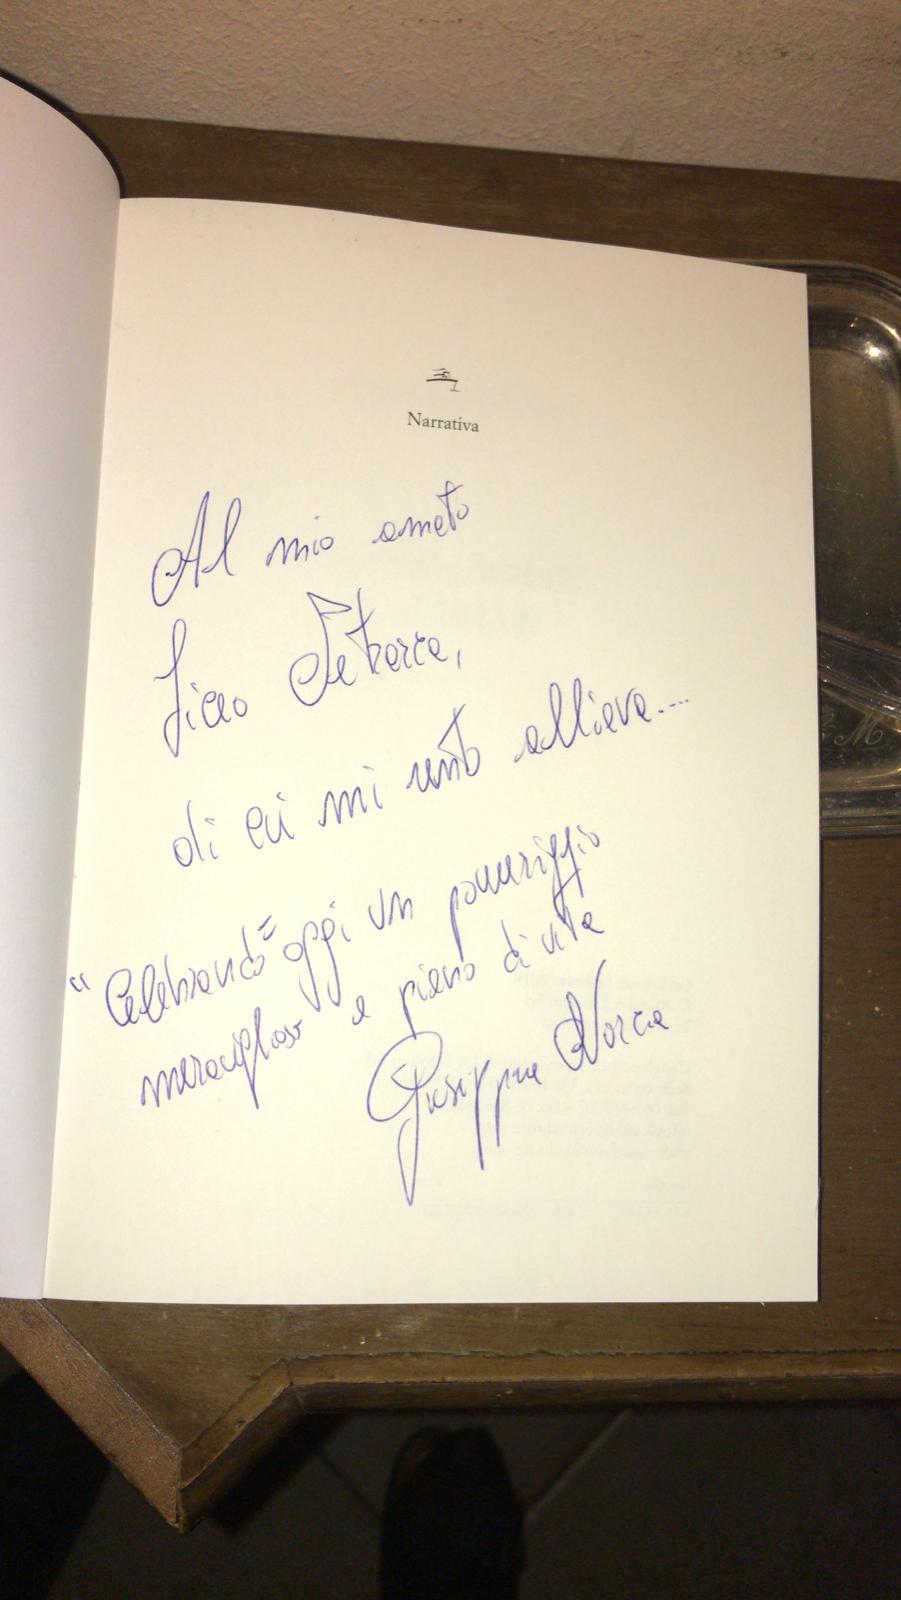 Narrativa
Al mio amato
Liceo Petrarca,
di cui mi sento allieva....
"Celebrando" oggi un pomeriggio
meraviglioso e pieno di vita
Giuseppina Norcia